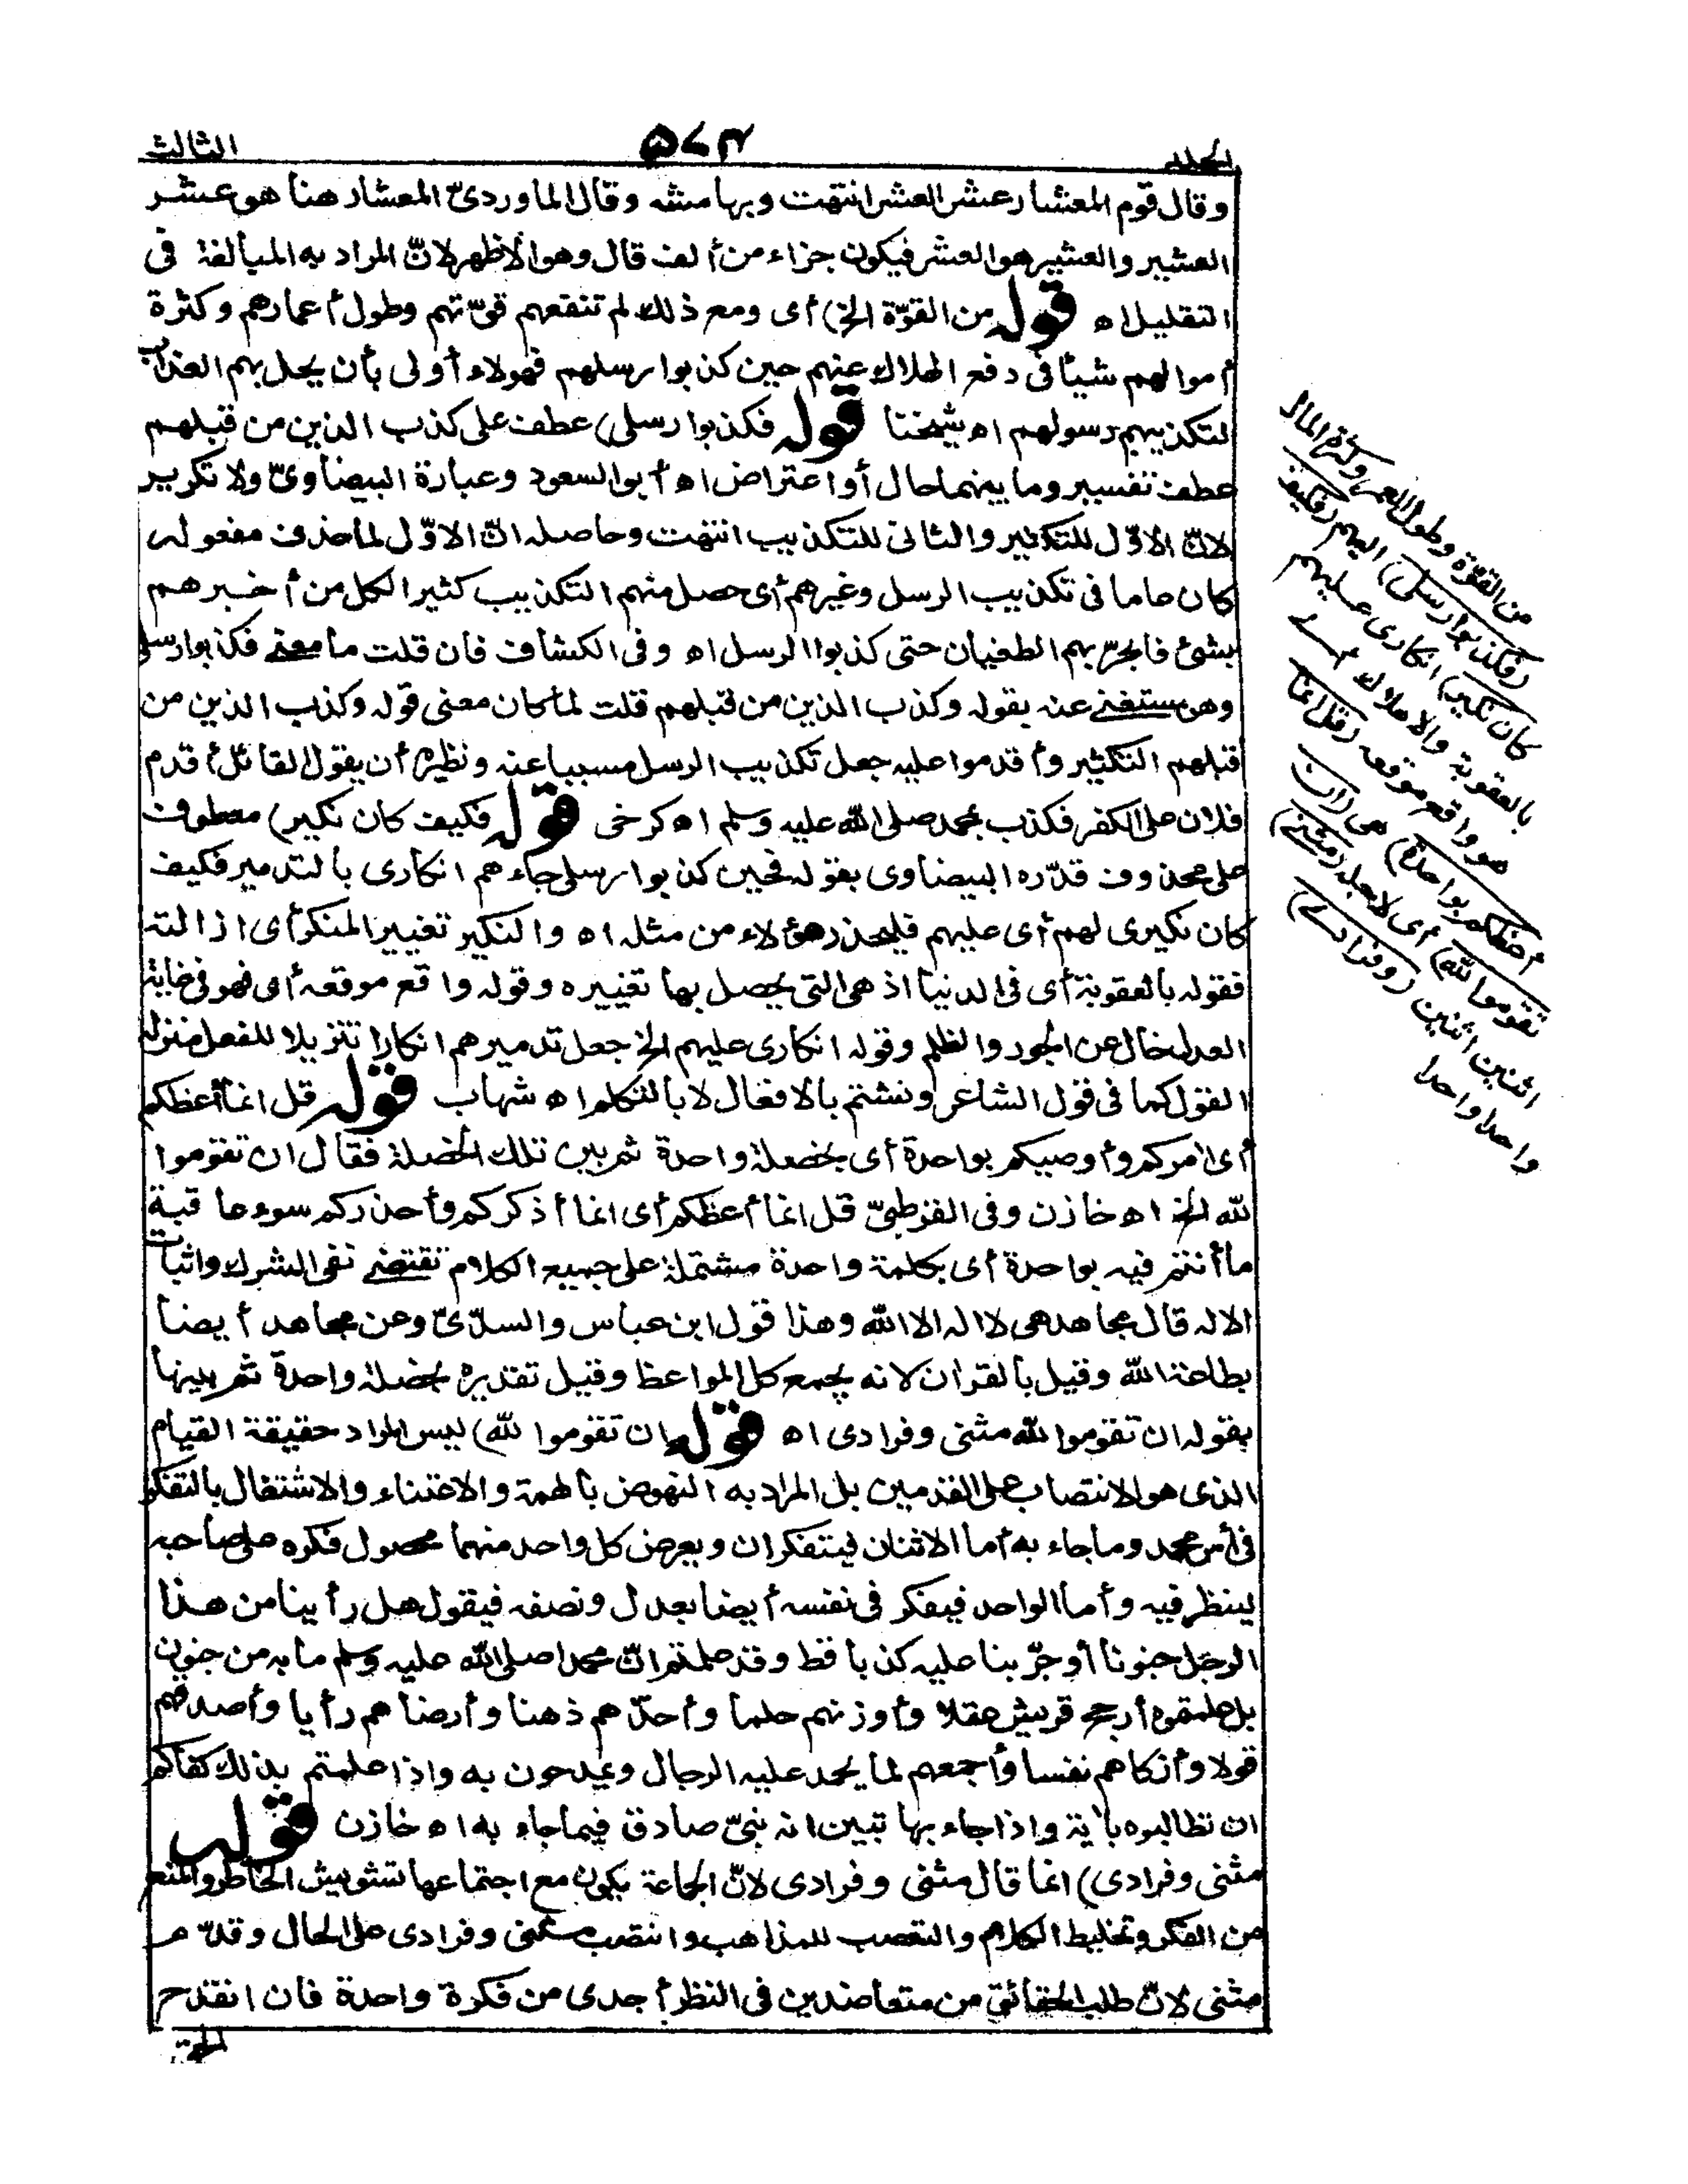 المجلد
۵۷۴
الثالث
وقال قوم المعشار عشر العشر انتهت وبهامشه وقال الماوردىّ المعشار هنا هو عشر
العشير والعشير هو العشر فيكون جزاء من ألف قال وهو الأظهر لانّ المراد به المبالغة فى
التقليل اه قوله من القوّة الخ) أى ومع ذلك لم تنفعهم قوّتهم وطول أعمارهم وكثرة
أموالهم شيأ فى دفع الهلاك عنهم حين كذبوا رسلهم فهولاء أولى بأن يحل بهم العذاب
لتكذيبهم رسولهم اه شيخنا قوله فكذبوا رسلى) عطف على كذب الذين من قبلهم
عطف تفسير وما بينهما حال أو اعتراض اه أبو السعود وعبارة البيضاوىّ ولا تكرير
لانّ الاوّل للتكثير والثانى للتكذيب انتهت وحاصله انّ الاوّل لما حذف مفعوله
كان عاما فى تكذيب الرسل وغيرهم أى حصل منهم التكذيب كثيرا لكل من أخبرهم
بشئ فانجرّ بهم الطغيان حتى كذبوا الرسل اه وفى الكشاف فان قلت ما معنے فكذبوا رسلى
وهو مستغنے عنه بقوله وكذب الذين من قبلهم قلت لما كان معنى قوله وكذب الذين من
قبلهم التكثير وأقدموا عليه جعل تكذيب الرسل مسببا عنه ونظيره أن يقول القائل أقدم
فلان على الكفر فكذب بمحمد صلى الله عليه وسلم اه كرخى قوله فكيف كان نكير) معطوف
على محذوف قدّره البيضاوى بقوله فحين كذبوا رسلى جاءهم انكارى بالتدمير فكيف
كان نكيرى لهم أى عليهم فليحذر هؤلاء من مثله اه والنكير تغيير المنكر أى ازالته
فقوله بالعقوبة أى فى الدنيا اذ هى التى يحصل بها تغييره وقوله واقع موقعه أى فهو فى غاية
العدل خال عن الجور والظلم وقوله انكارى عليهم الخ جعل تدميرهم انكارا تنزيلا للفعل منزلة
القول كما فى قول الشاعر ونشتم بالافعال لا بالتكلم اه شهاب قوله قل انما أعظكم
أى آمركم وأوصيكم بواحدة أى بخصلة واحدة ثم بين تلك الخصلة فقال ان تقوموا
لله الخ اه خازن وفى القرطبىّ قل انما أعظكم أى انما أذكركم وأحذركم سوء عاقبة
ما أنتم فيه بواحدة أى بكلمة واحدة مشتملة على جميع الكلام تقتضے نفى الشرك واثبات
الاله قال مجاهد هى لا اله الا الله وهذا قول ابن عباس والسدّىّ وعن مجاهد أيضا
بطاعة الله وقيل بالقران لانه يجمع كل المواعظ وقيل تقديره بخصلة واحدة ثم بينها
بقوله ان تقوموا لله مثنى وفرادى اه قوله ان تقوموا لله) ليس المراد حقيقة القيام
الذى هو الانتصاب على القدمين بل المراد به النهوض بالهمة والاعتناء والاشتغال بالتفكر
فى أمر محمد وما جاء به أما الاثنان فيتفكران ويعرض كل واحد منهما محصول فكره على صاحبه
لينظر فيه وأما الواحد فيفكر فى نفسه أيضا بعدل ونصفه فيقول هل رأينا من هذا
الرجل جنونا أو جرّبنا عليه كذبا قط وقد علمتم انّ محمدا صلى الله عليه وسلم ما به من جنون
بل علمتموه أرجح قريش عقلا وأوزنهم حلما وأحدّهم ذهنا وأرضاهم رأيا وأصدقهم
قولا وأزكاهم نفسا وأجمعهم لما يحمد عليه الرجال ويمدحون به واذا علمتم بذلك كفاكم
ان تطالبوه بآية واذا جاء بها تبين انه نبىّ صادق فيما جاء به اه خازن قوله
مثنى وفرادى) انما قال مثنى وفرادى لانّ الجماعة يكون مع اجتماعها تشويش الخاطر والمنع
من الفكر وتخليط الكلام والتعصب للمذاهب وانتصب مثنى وفرادى على الحال وقدّم
مثنى لانّ طلب الحقائق من متعاضدين فى النظر أجدى من فكرة واحدة فان انقدح
الحق
من القوّة وطول العمر وكثرة المال
(فكذبوا رسلى) اليهم (فكيف
كان نكير) انكارى عليهم
بالعقوبة والاهلاك أے
هو واقع موقعه (قل انما
أعظكم بواحدة) هى (ان
تقوموا لله) أى لاجله (مثنے)
اثنين اثنين (وفرادے)
واحدا واحدا